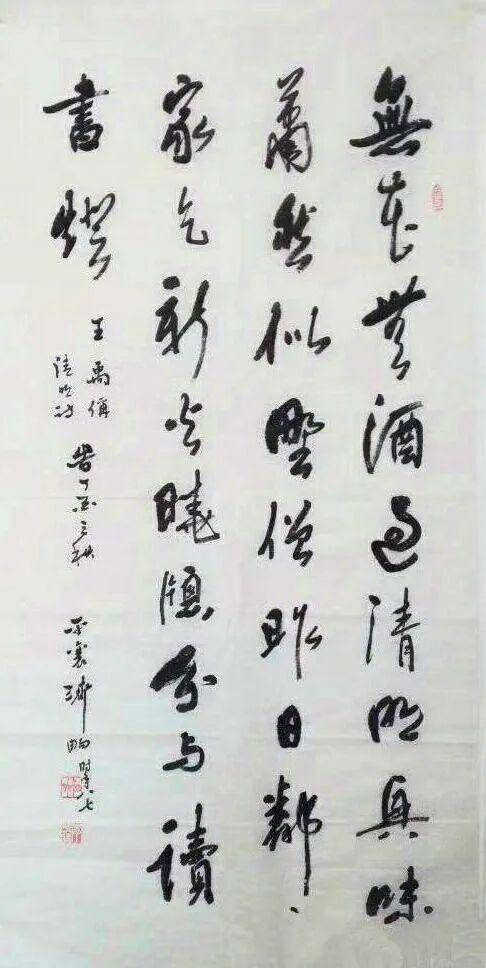 無花無酒過清明興味
蕭然似野僧昨日鄰
家乞新火曉窗分与讀
書燈
王禹偁
清明詩
歲丁酉之秋
平襄